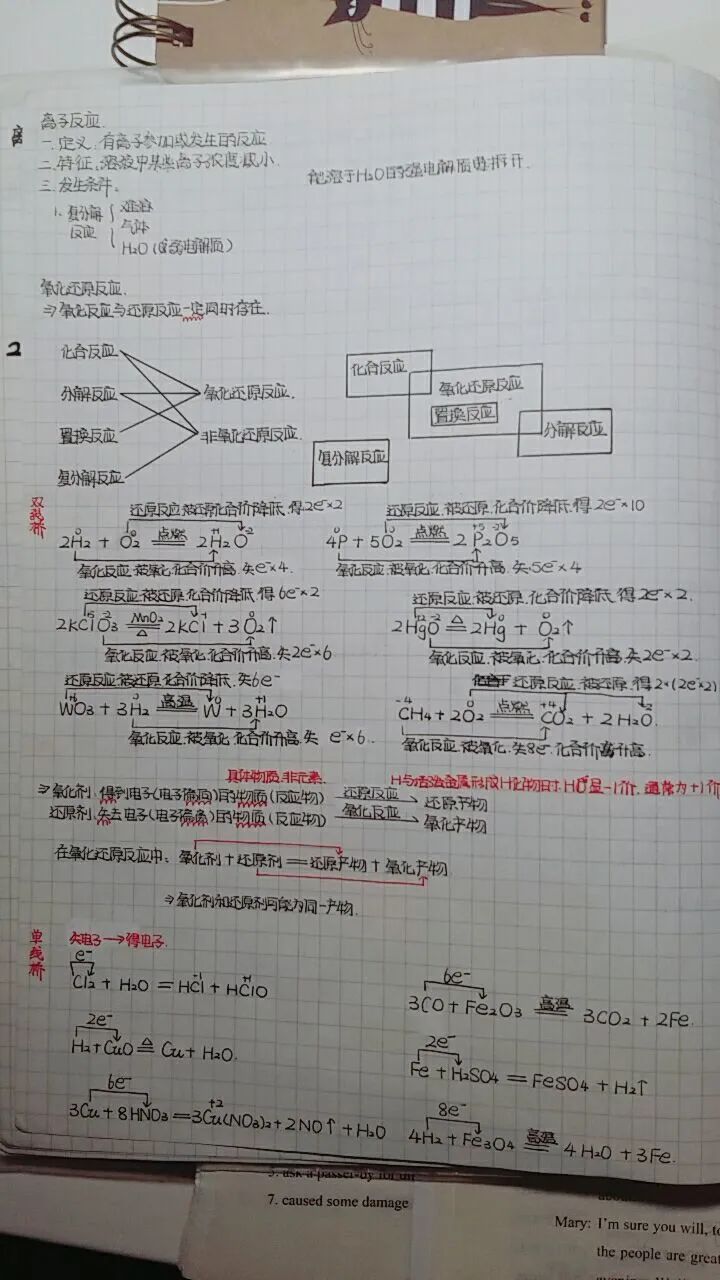 离子反应.
一.定义.有离子参加或发生的反应
二.特征.溶液中某些离子浓度减小.
能溶于H₂O的强电解质要拆开.
三.发生条件.
1.复分解反应 { 难溶
气体
H₂O(弱电解质)
氧化还原反应.
⇒氧化反应与还原反应一定同时存在.
2
化合反应
分解反应
置换反应
复分解反应
氧化还原反应.
非氧化还原反应.
化合反应
氧化还原反应
置换反应
分解反应
复分解反应
双线桥
还原反应.被还原.化合价降低.得2e⁻×2
2H₂ + O₂ 点燃═ 2H₂O
氧化反应.被氧化.化合价升高.失e⁻×4.
还原反应.被还原.化合价降低.得2e⁻×10
4P + 5O₂ 点燃═ 2P₂O₅
氧化反应.被氧化.化合价升高.失5e⁻×4
还原反应.被还原.化合价降低.得6e⁻×2
2KClO₃ MnO₂═△ 2KCl + 3O₂↑
氧化反应.被氧化.化合价升高.失2e⁻×6
还原反应.被还原.化合价降低.得2e⁻×2.
2HgO △═ 2Hg + O₂↑
氧化反应.被氧化.化合价升高.失2e⁻×2.
还原反应.被还原.化合价降低.失6e⁻
WO₃ + 3H₂ 高温═ W + 3H₂O
氧化反应.被氧化.化合价升高.失 e⁻×6.
还原反应.被还原.得2×(2e⁻×2)
CH₄ + 2O₂ 点燃═ CO₂ + 2H₂O.
氧化反应.被氧化.失8e⁻.化合价升高.
具体物质.非元素.
H与活泼金属形成H化物时.H显-1价.通常为+1价
⇒氧化剂.得到电子(电子偏向)的物质(反应物) 还原反应→还原产物
还原剂.失去电子(电子偏离)的物质(反应物) 氧化反应→氧化产物
在氧化还原反应中. 氧化剂+还原剂═还原产物+氧化产物
⇒氧化剂和还原剂可能为同一产物.
单线桥
失电子→得电子.
e⁻
Cl₂ + H₂O = HCl + HClO
6e⁻
3CO + Fe₂O₃ 高温═ 3CO₂ + 2Fe.
2e⁻
H₂ + CuO △═ Cu + H₂O.
2e⁻
Fe + H₂SO₄ = FeSO₄ + H₂↑
6e⁻
3Cu + 8HNO₃ = 3Cu(NO₃)₂ + 2NO↑ + H₂O
8e⁻
4H₂ + Fe₃O₄ 高温═ 4H₂O + 3Fe.
7. caused some damage
Mary: I'm sure you will, to
the people are great